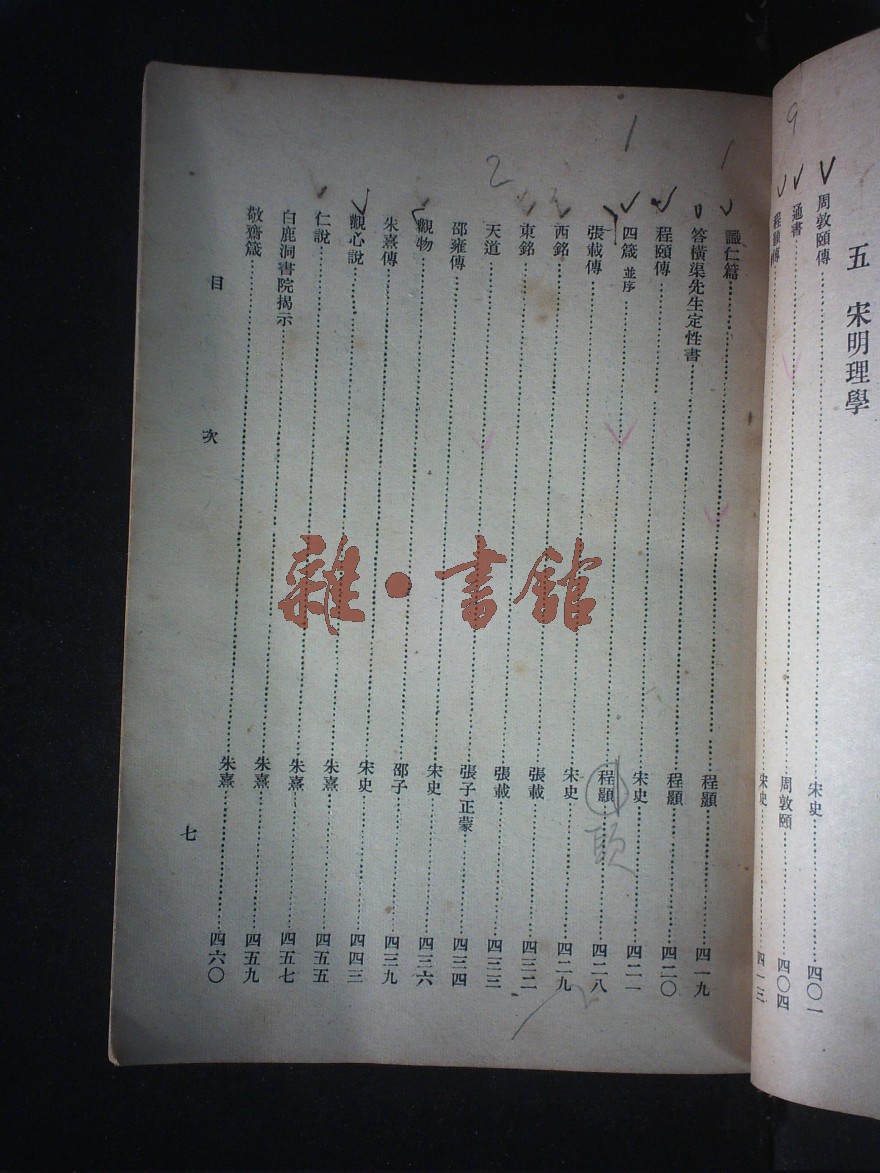 五　宋明理學
周敦頤傳……宋史……四〇一
通書……周敦頤……四〇四
程顥傳……宋史……四一三
識仁篇……程顥……四一九
答橫渠先生定性書……程顥……四二〇
程頤傳……宋史……四二一
四箴 並序……程顥……四二八
張載傳……宋史……四二九
西銘……張載……四三二
東銘……張載……四三三
天道……張子正蒙……四三四
邵雍傳……宋史……四三六
觀物……邵子……四三九
朱熹傳……宋史……四四三
觀心說……朱熹……四五五
仁說……朱熹……四五七
白鹿洞書院揭示……朱熹……四五九
敬齋箴……朱熹……四六〇
目次
七
9
1
2
雜·書館